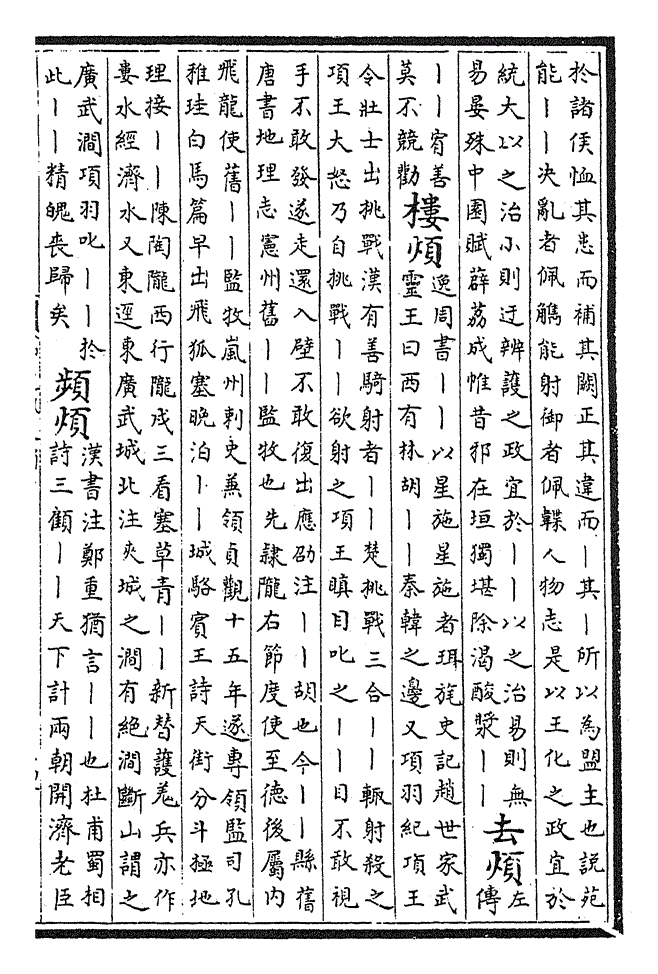 於諸侯恤其患而補其闕正其違而丨其丨所以為盟主也說苑
能丨丨決亂者佩觹能射御者佩韘人物志是以王化之政宜於
統大以之治小則迂辨護之政宜於丨丨以之治易則無
易晏殊中園賦薜荔成帷昔邪在垣獨堪除渴酸漿丨丨
去煩
左
傳
丨丨宥善
莫不競勸
樓煩
逸周書丨丨以星施星施者珥旄史記趙世家武
靈王曰西有林胡丨丨秦韓之邊又項羽紀項王
令壯士出挑戰漢有善騎射者丨丨楚挑戰三合丨丨輒射殺之
項王大怒乃自挑戰丨丨欲射之項王瞋目叱之丨丨目不敢視
手不敢發遂走還入壁不敢復出應劭注丨丨胡也今丨丨縣舊
唐書地理志憲州舊丨丨監牧也先隸隴右節度使至德後屬內
飛龍使舊丨丨監牧嵐州刺史兼領貞觀十五年遂專領監司孔
稚珪白馬篇早出飛狐塞晚泊丨丨城駱賓王詩天街分斗極地
理接丨丨陳陶隴西行隴戍三看塞草青丨丨新替護羌兵亦作
婁水經濟水又東逕東廣武城北注夾城之澗有絕澗斷山謂之
廣武澗項羽叱丨丨於
此丨丨精魄喪歸矣
頻煩
漢書注鄭重猶言丨丨也杜甫蜀相
詩三顧丨丨天下計兩朝開濟老臣